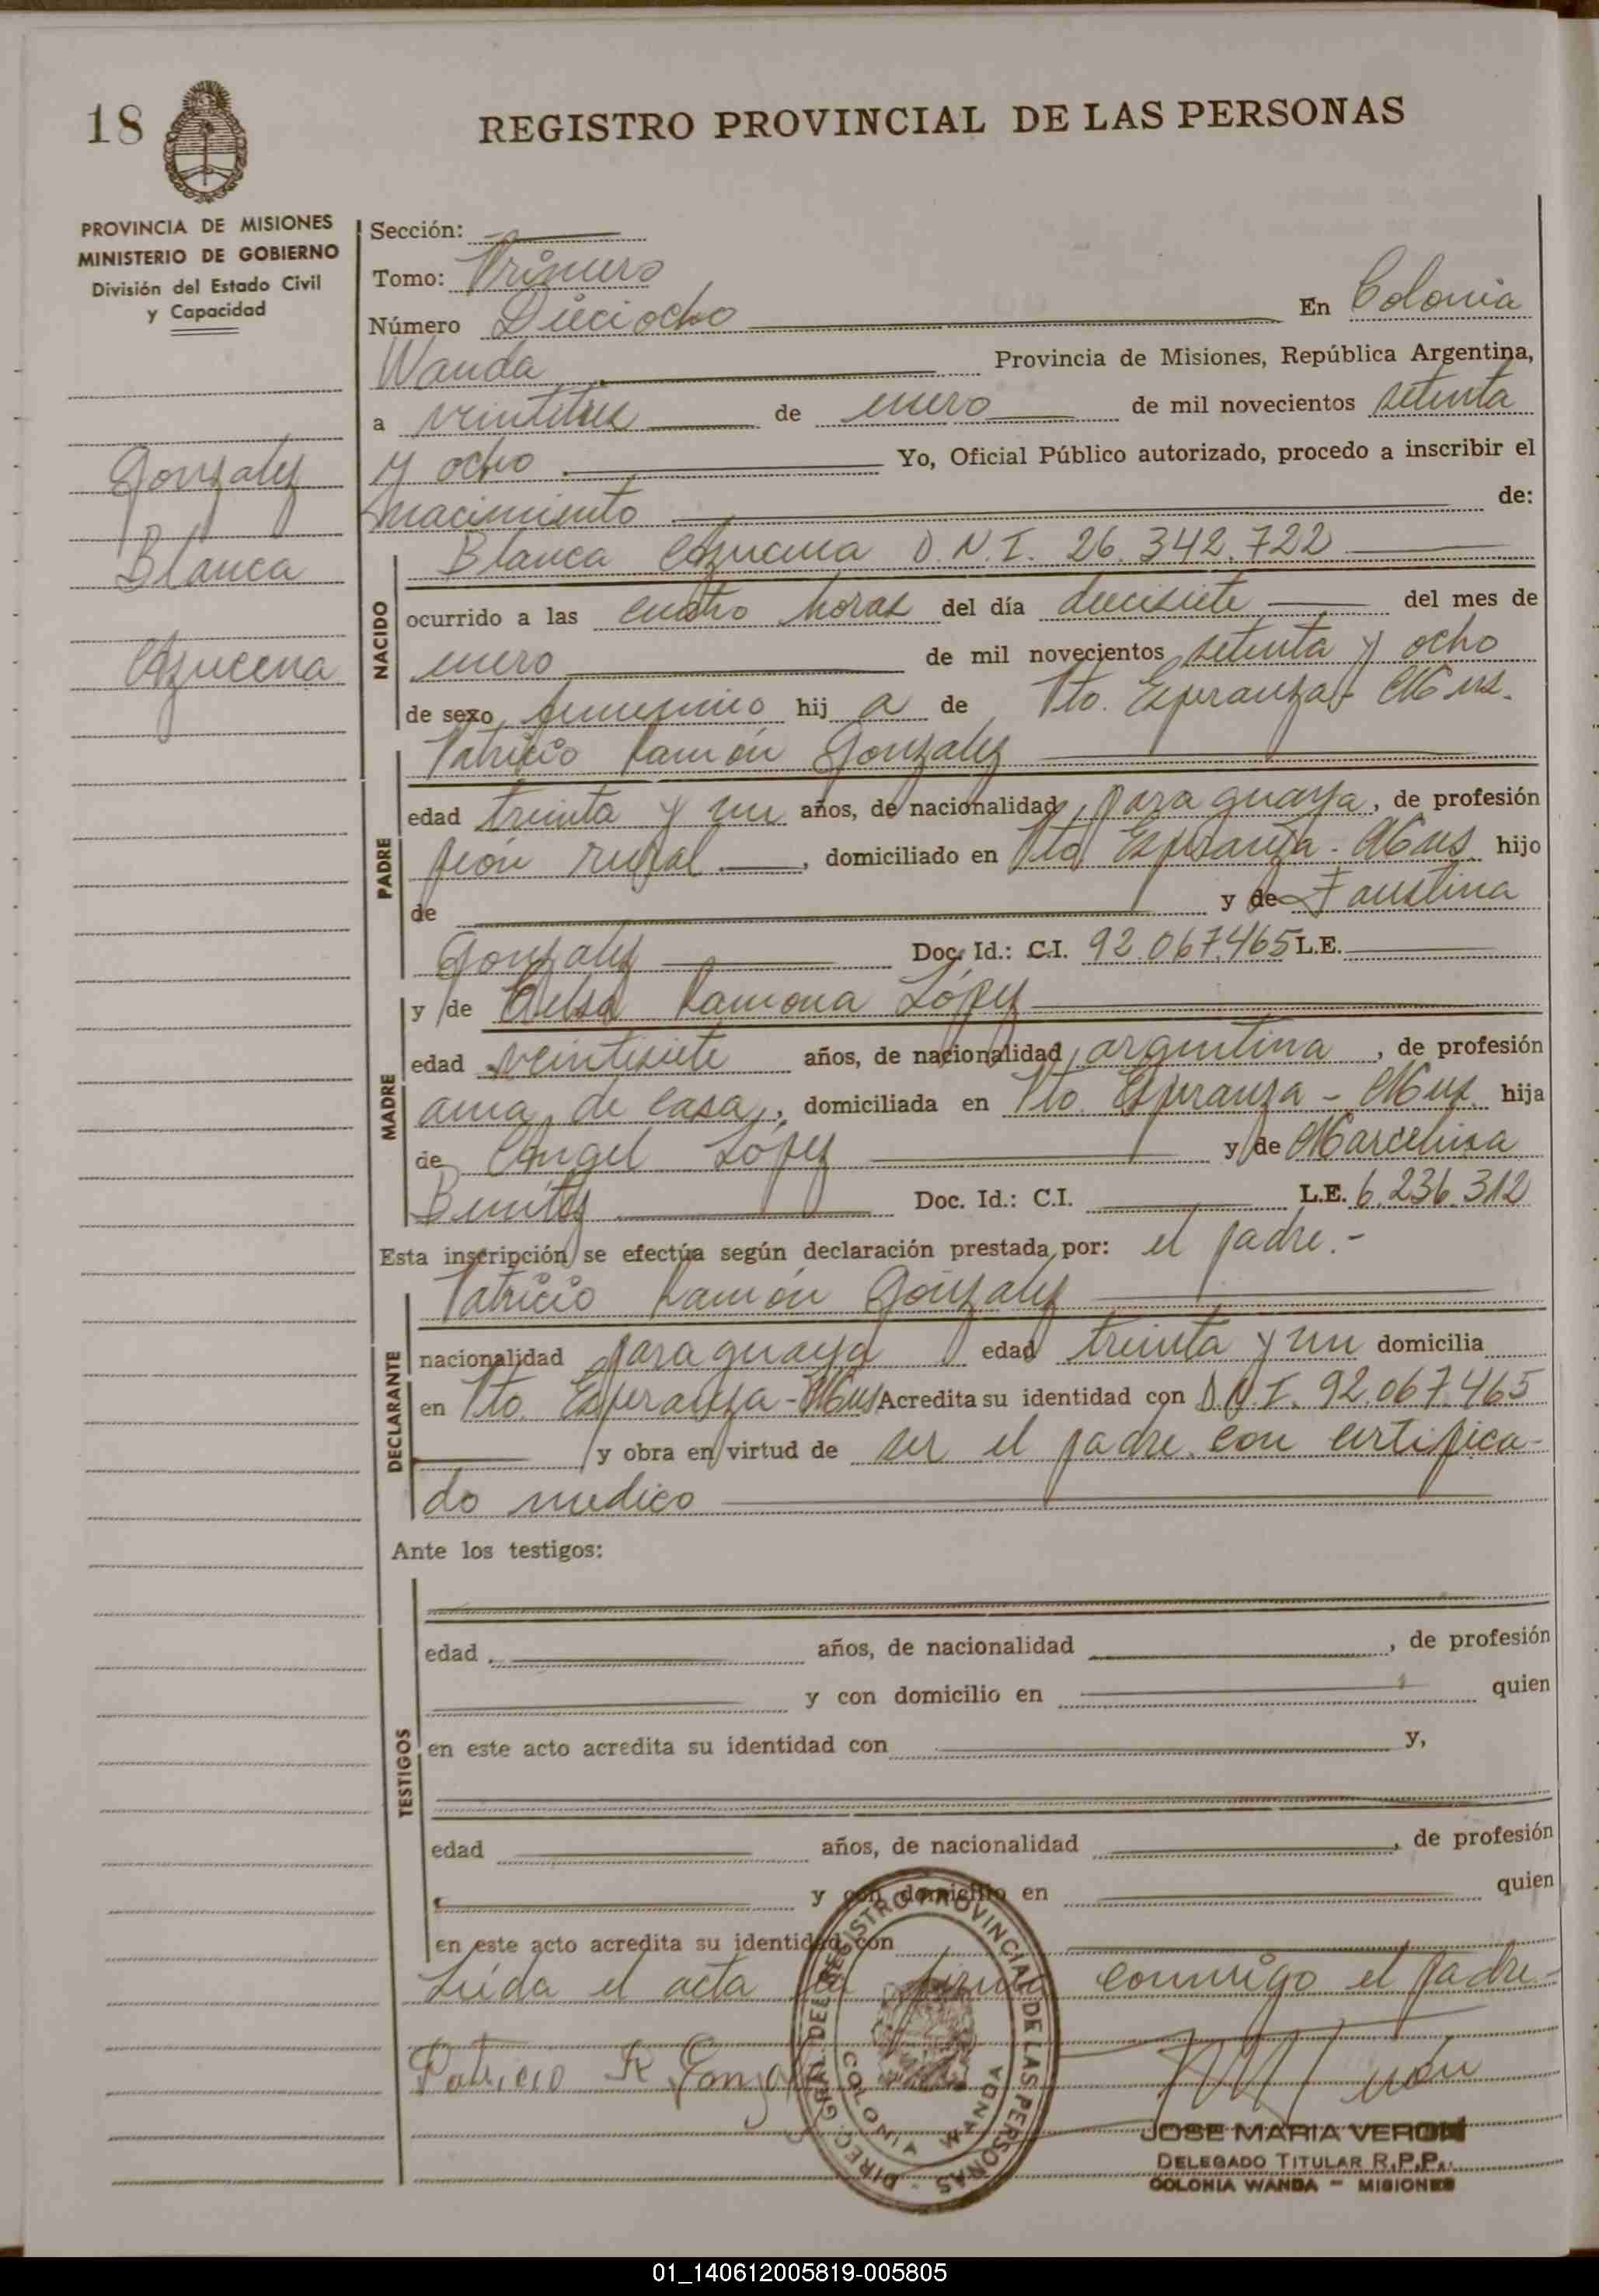 18
REGISTRO PROVINCIAL DE LAS PERSONAS
PROVINCIA DE MISIONES
MINISTERIO DE GOBIERNO
División del Estado Civil
y Capacidad
Gonzalez
Blanca
Azucena
Sección:
Tomo: Primero
Número Dieciocho En Colonia
Wanda Provincia de Misiones, República Argentina,
a veintitres de enero de mil novecientos setenta
y ocho Yo, Oficial Público autorizado, procedo a inscribir el
nacimiento de:
NACIDO
Blanca Azucena D.N.I. 26.342.722
ocurrido a las cuatro horas del día diecisiete del mes de
enero de mil novecientos setenta y ocho
de sexo femenino hij a de Pto. Esperanza - Mns.
PADRE
Patricio Ramón Gonzalez
edad treinta y un años, de nacionalidad paraguaya, de profesión
peón rural, domiciliado en Pto Esperanza - Mns hijo
de y de Faustina
Gonzalez Doc. Id.: C.I. 92.067.465 L.E.
MADRE
y de Elsa Ramona López
edad veintisiete años, de nacionalidad argentina, de profesión
ama de casa, domiciliada en Pto. Esperanza - Mns. hija
de Angel López y de Marcelina
Benítez Doc. Id.: C.I. L.E. 6.236.312
Esta inscripción se efectúa según declaración prestada por: el padre.-
DECLARANTE
Patricio Ramón Gonzalez
nacionalidad paraguaya edad treinta y un domicilia
en Pto. Esperanza - Mns Acredita su identidad con D.N.I. 92.067.465
y obra en virtud de ser el padre con certifica-
do medico
Ante los testigos:
TESTIGOS
edad años, de nacionalidad , de profesión
y con domicilio en quien
en este acto acredita su identidad con y,
edad años, de nacionalidad , de profesión
y con domicilio en quien
en este acto acredita su identidad con
Leída el acta la firma conmigo el padre.-
Patricio R. Gonzal
DIREC. GRAL. DEL REGISTRO PROVINCIAL DE LAS PERSONAS
COLONIA WANDA
JOSE MARIA VERON
DELEGADO TITULAR R.P.P.
COLONIA WANDA - MISIONES
01_140612005819-005805